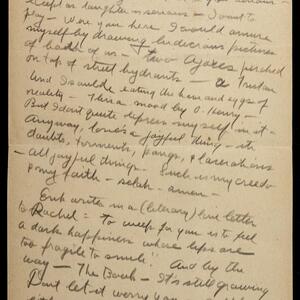 except in laughter is serious — I want to
play — Were you here I would amuse
myself by drawing ludicrous pictures
of both of us — two Ajaxes perched
on top of street hydrants — a Tristan
And Isolde eating the ham and eggs of
reality — Thru a mood by O. Henry —
But I don't quite express myself in it —
Anyway, love's a joyful thing — its
doubts, torments, pangs, & lacerations
— all joyful things. Such is my credo
& my faith — selah — amen —
Erik writes in a (literary) love letter
to Rachel: "To weep for you is to feel
a dark happiness whose lips are
too fragile to smile." And by the
way — The Book — It's still growing
Don't let it worry you